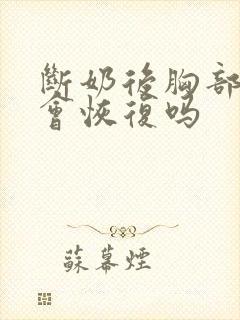 斷奶後胸部
會恢復嗎
蘇幕煙